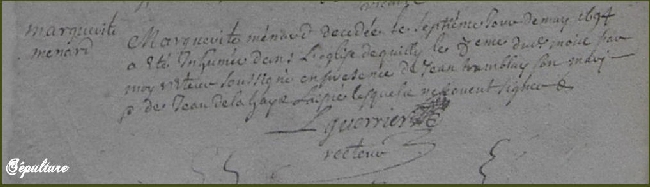 marguerite
menard
Marguerite ménard decedée le septiéme Jour de may 1694
a été Inhumée dans L'eglise dequilly le d. mois par
moy recteur soussigné en presence de Jean tremblay son mary
de Jean de la haye lesquels ne scavent signer &
Lguerrier
recteur
Sépulture